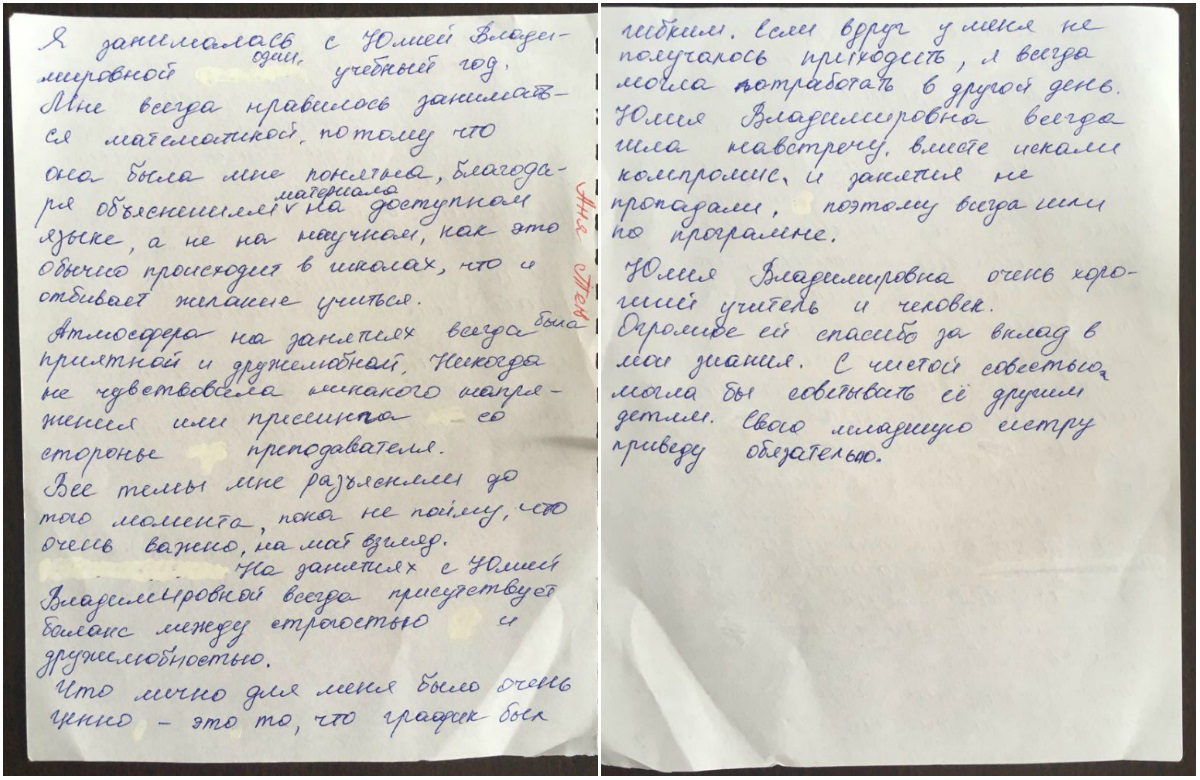 Я занималась с Юлией Влади-
мировной один учебный год.
Мне всегда нравилось занимать-
ся математикой, потому что
она была мне понятна, благода-
ря объяснениям материала на доступном
языке, а не на научном, как это
обычно происходит в школах, что и
отбивает желание учиться.
Атмосфера на занятиях всегда была
приятной и дружелюбной. Никогда
не чувствовала никакого напря-
жения или прессинга со
стороны преподавателя.
Все темы мне разъясняли до
того момента, пока не пойму, что
очень важно, на мой взгляд.
На занятиях с Юлией
Владимировной всегда присутствует
баланс между строгостью и
дружелюбностью.
Что лично для меня было очень
ценно – это то, что график был
Аня
гибким. Если вдруг у меня не
получалось приходить, я всегда
могла отработать в другой день.
Юлия Владимировна всегда
шла навстречу, вместе искали
компромис, и занятия не
пропадали, поэтому всегда шли
по программе.
Юлия Владимировна очень хоро-
ший учитель и человек.
Огромное ей спасибо за вклад в
мои знания. С чистой совестью
могла бы советывать её другим
детям. Свою младшую сестру
приведу обязательно.